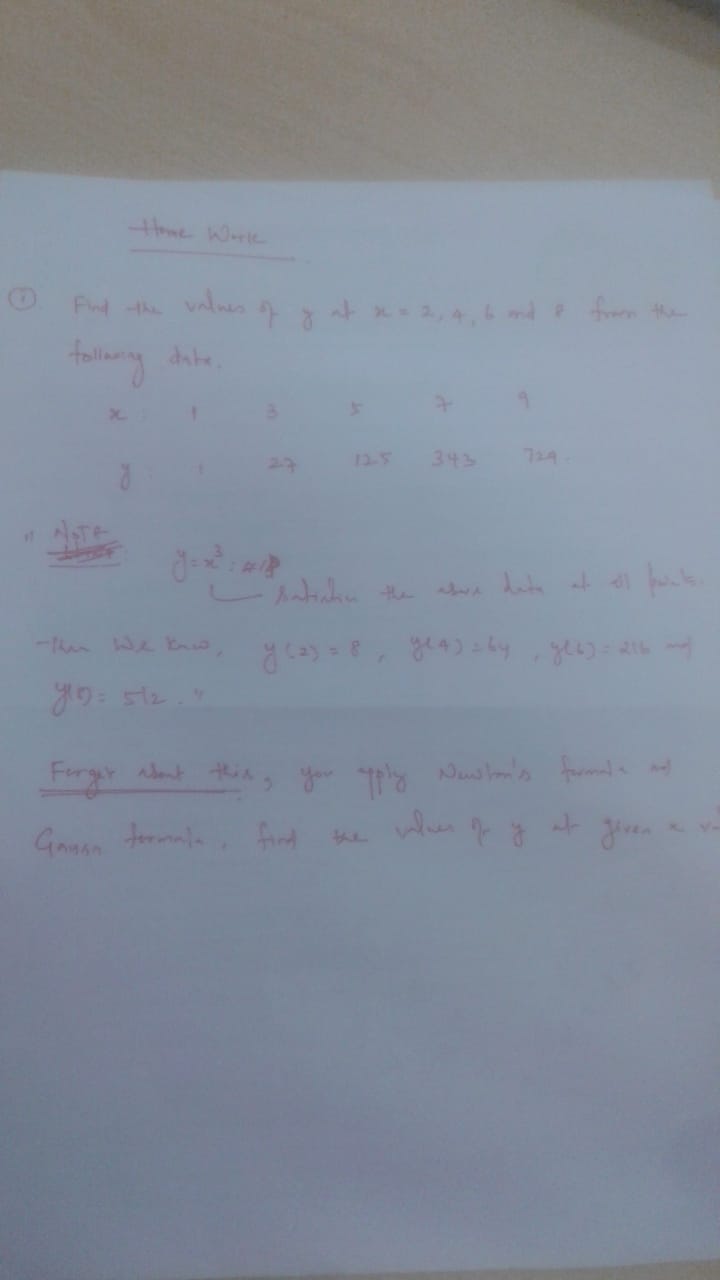 Home Work
① Find the values of y at x = 2, 4, 6 and 8 from the
following data.
x : 1 3 5 7 9
y : 1 27 125 343 729.
" NOTE
y = x³ :
satisfies the above data at all points.
Then we know, y(2) = 8, y(4) = 64, y(6) = 216 and
y(8) = 512."
Forget about this, you apply Newton's formula and
Gauss formula, find the values of y at given x